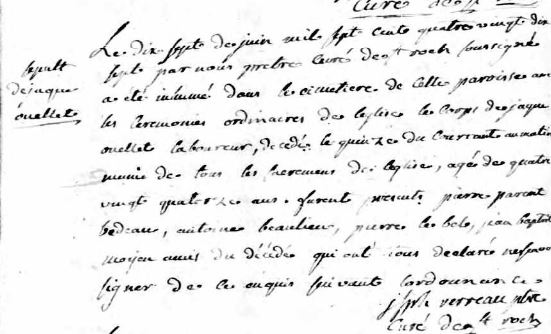 Curé de
Le dix sept de juin mil sept cents quatre vingt dix
sept par nous prêtre curé de st roch soussigné
a été inhumé dans le cimetiere de cette paroisse avec
les ceremonies ordinaires de leglise le corps de jaque
ouellet laboureur, decedé le quinze du courrant au matin
munie de tous les sacremens de leglise, agé de quatre
vingt quatorze ans. furent presents pierre parent
bedeau, antoine beaulieu, pierre le bele, jean baptiste
moyen amis du décédé qui ont tous declaré ne savoir
signer de ce enquis suivant lordonnance
verreau ptre
Curé de st roch
sepult
de jaque
ouellet